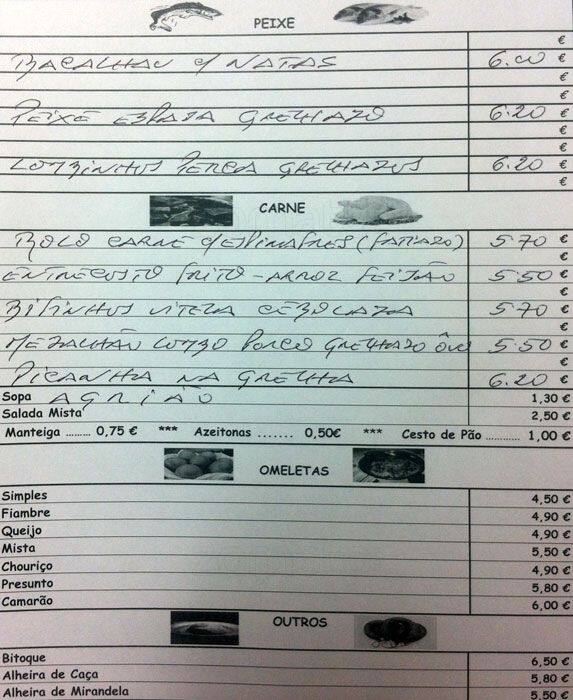 PEIXE
€
BACALHAU C/ NATAS 6.00 €
€
€
PEIXE ESPADA GRELHADO 6.20 €
€
€
LOMBINHOS PERCA GRELHADOS 6.20 €
€
CARNE
€
BOLO CARNE C/ESPINAFRES (FATIADO) 5.70 €
€
ENTRECOSTO FRITO - ARROZ FEIJÃO 5.50 €
€
BIFINHOS VITELA CEBOLADA 5.70 €
€
MEDALHÃO LOMBO PORCO GRELHADO ÔVO 5.50 €
€
PICANHA NA GRELHA 6.20 €
Sopa AGRIÃO 1,30 €
Salada Mista 2,50 €
Manteiga ......... 0,75 € *** Azeitonas ....... 0,50€ *** Cesto de Pão ............ 1,00 €
OMELETAS
Simples 4,50 €
Fiambre 4,90 €
Queijo 4,90 €
Mista 5,50 €
Chouriço 4,90 €
Presunto 5,80 €
Camarão 6,00 €
OUTROS
Bitoque 6,50 €
Alheira de Caça 5,80 €
Alheira de Mirandela 5,50 €